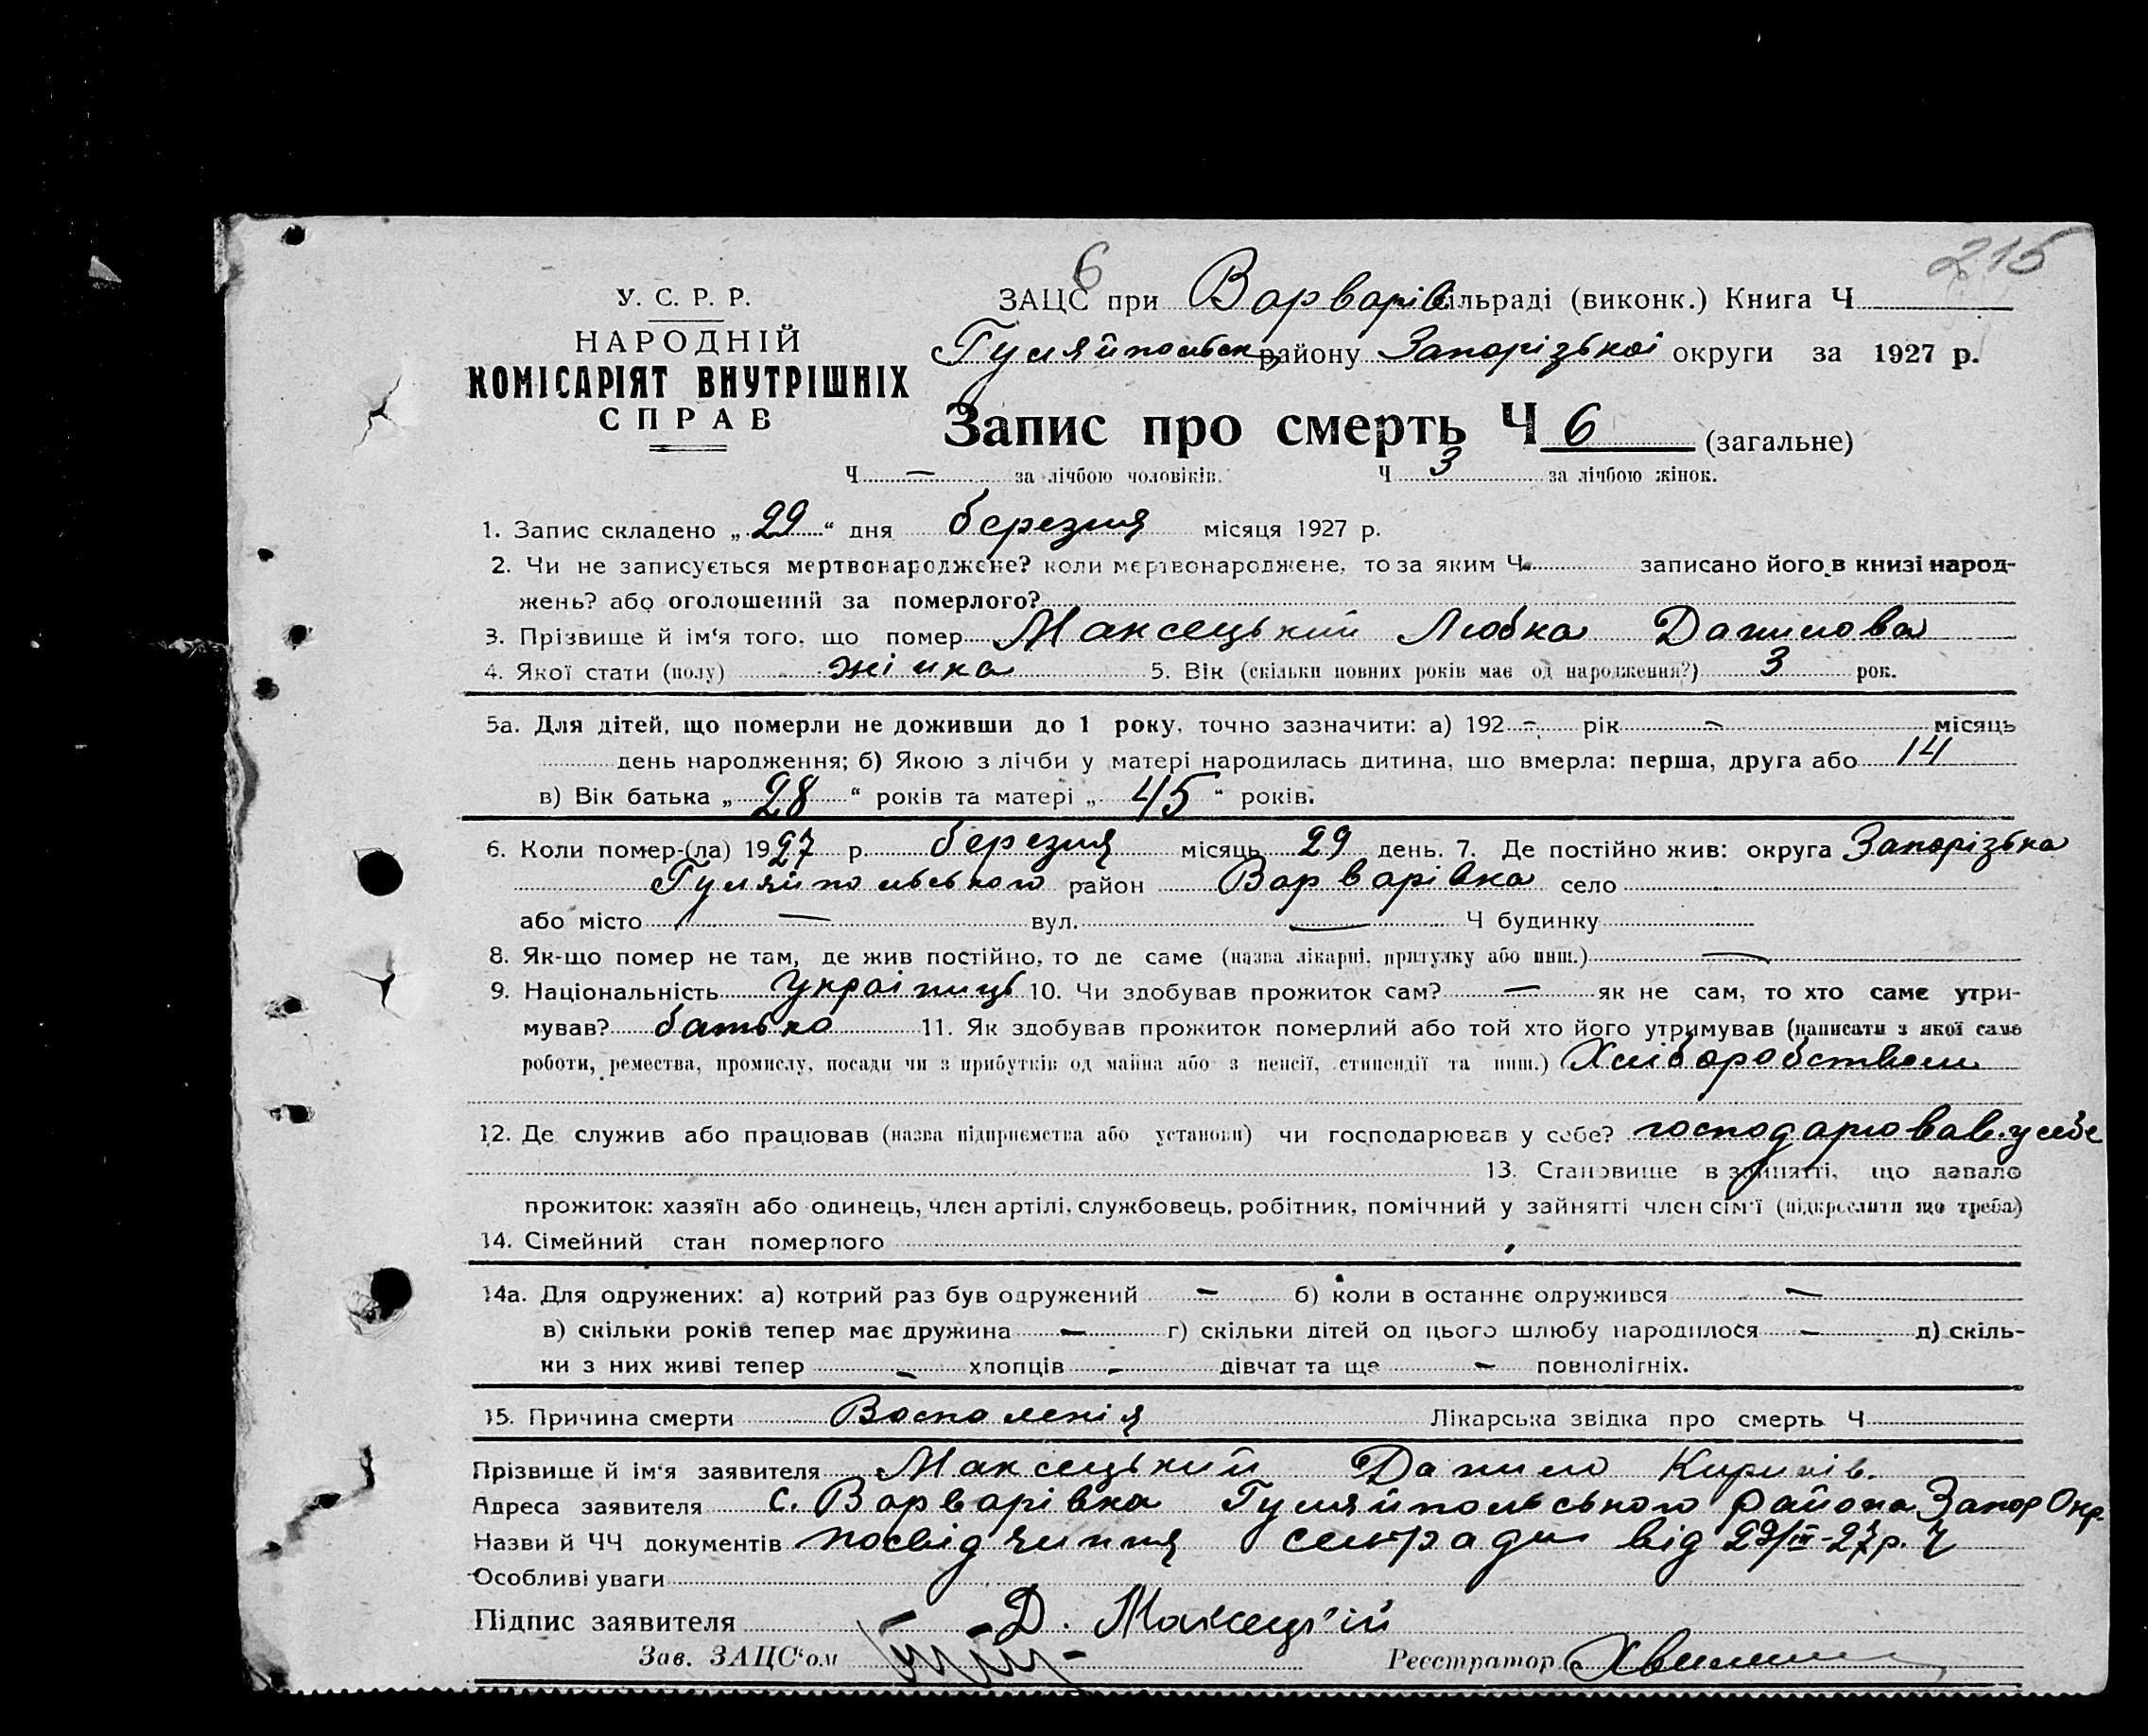 215
6
У. С. Р. Р.
НАРОДНІЙ
КОМІСАРІЯТ ВНУТРІШНІХ
СПРАВ
ЗАЦС при Варварів сільраді (виконк.) Книга Ч
Гуляйпольськ району Запорізької округи за 1927 р.
Запис про смерть Ч 6 (загальне)
Ч — за лічбою чоловіків. Ч 3 за лічбою жінок.
1. Запис складено „29“ дня березня місяця 1927 р.
2. Чи не записується мертвонароджене? коли мертвонароджене, то за яким Ч. записано його в книзі народ-
жень? або оголошений за померлого?
3. Прізвище й ім‘я того, що помер Максецький Любка Данилова
4. Якої стати (полу) жінка 5. Вік (скільки повних років має од народження?) 3 рок.
5а. Для дітей, що померли не доживши до 1 року, точно зазначити: а) 192 – рік – місяць
день народження; б) Якою з лічби у матері народилась дитина, що вмерла: перша, друга або 14
в) Вік батька „28“ років та матері „45“ років.
6. Коли помер-(ла) 1927 р. березня місяць 29 день. 7. Де постійно жив: округа Запорізька
Гуляйпольського район Варварівка село
або місто — вул. — Ч будинку
8. Як-що помер не там, де жив постійно, то де саме (назва лікарні, притулку або инш.) —
9. Національність україниць 10. Чи здобував прожиток сам? — як не сам, то хто саме утри-
мував? батько 11. Як здобував прожиток померлий або той хто його утримував (написати з якої саме
роботи, ремества, промислу, посади чи з прибутків од майна або з пенсії, стипендії та инш.) Хліборобством
12. Де служив або працював (назва підприємства або установи) чи господарював у себе? господарював у себе
13. Становище в зайнятті, що давало
прожиток: хазяїн або одинець, член артілі, службовець, робітник, помічний у зайнятті член сім‘ї (підкреслити що треба)
14. Сімейний стан померлого
14а. Для одружених: а) котрий раз був одружений – б) коли в останнє одружився –
в) скільки років тепер має дружина – г) скільки дітей од цього шлюбу народилося – д) скіль-
ки з них живі тепер – хлопців – дівчат та ще – повнолітніх.
15. Причина смерти Воспаленія Лікарська звідка про смерть Ч
Прізвище й ім‘я заявителя Максецький Данило Кирилів.
Адреса заявителя с. Варварівка Гуляйпольського района Запор Окр.
Назви й ЧЧ документів посвідчиння сельради від 29/III-27р. Ч
Особливі уваги
Підпис заявителя Д. Максецкій
Зав. ЗАЦС‘ом
Реєстратор